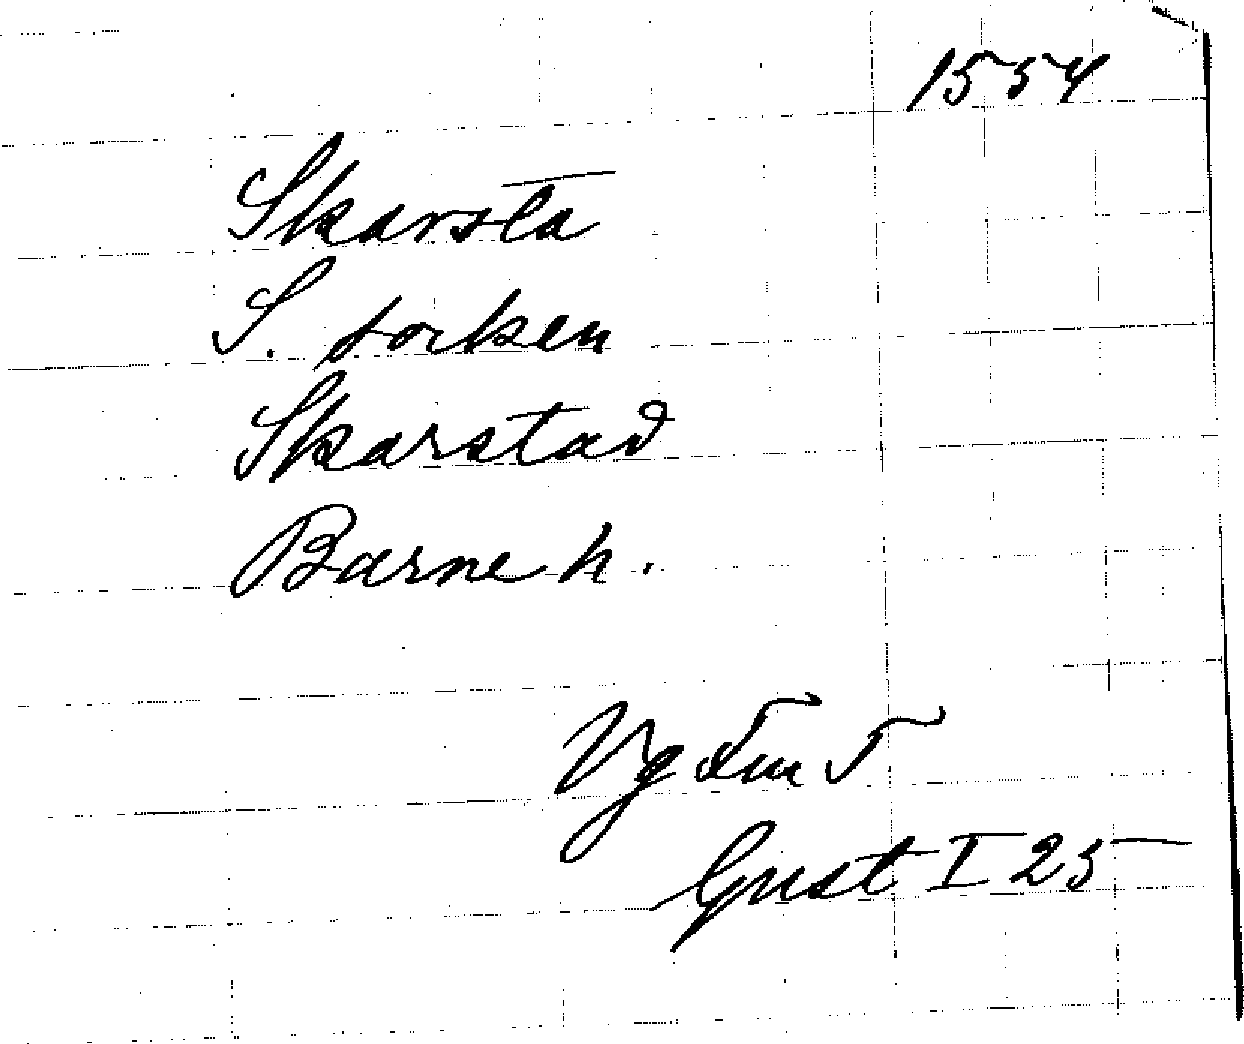 1554
Skarsta
S. socken
Skarstad
Barne h.
Vg
Gust I 25